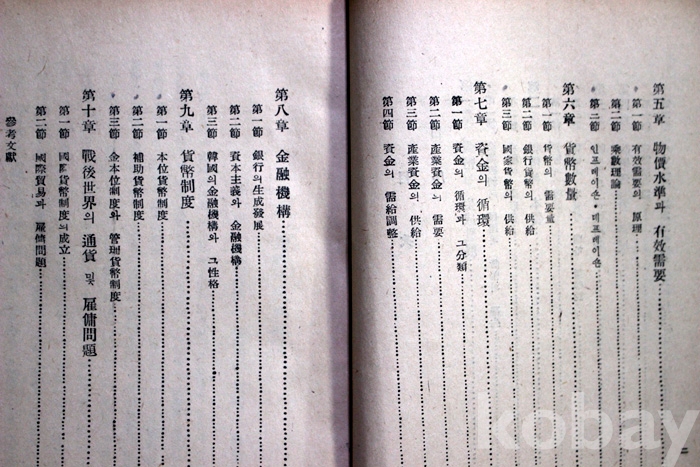 第五章 物價水準과 有效需要
第一節 有效需要의 原理
第二節 乘數理論
第三節 인프레이숀·데프레이숀
第六章 貨幣數量
第一節 貨幣의 需要量
第二節 銀行貨幣의 供給
第三節 國家貨幣의 供給
第七章 資金의 循環
第一節 資金의 循環과 그 分類
第二節 產業資金의 需要
第三節 產業資金의 供給
第四節 資金의 需給調整
第八章 金融機構
第一節 銀行의 生成發展
第二節 資本主義와 金融機構
第三節 韓國의 金融機構와 그 性格
第九章 貨幣制度
第一節 本位貨幣制度
第二節 補助貨幣制度
第三節 金本位制度와 管理貨幣制度
第十章 戰後世界의 通貨 및 雇傭問題
第一節 國際貨幣制度의 成立
第二節 國際貿易과 雇傭問題
參考文獻
kobay